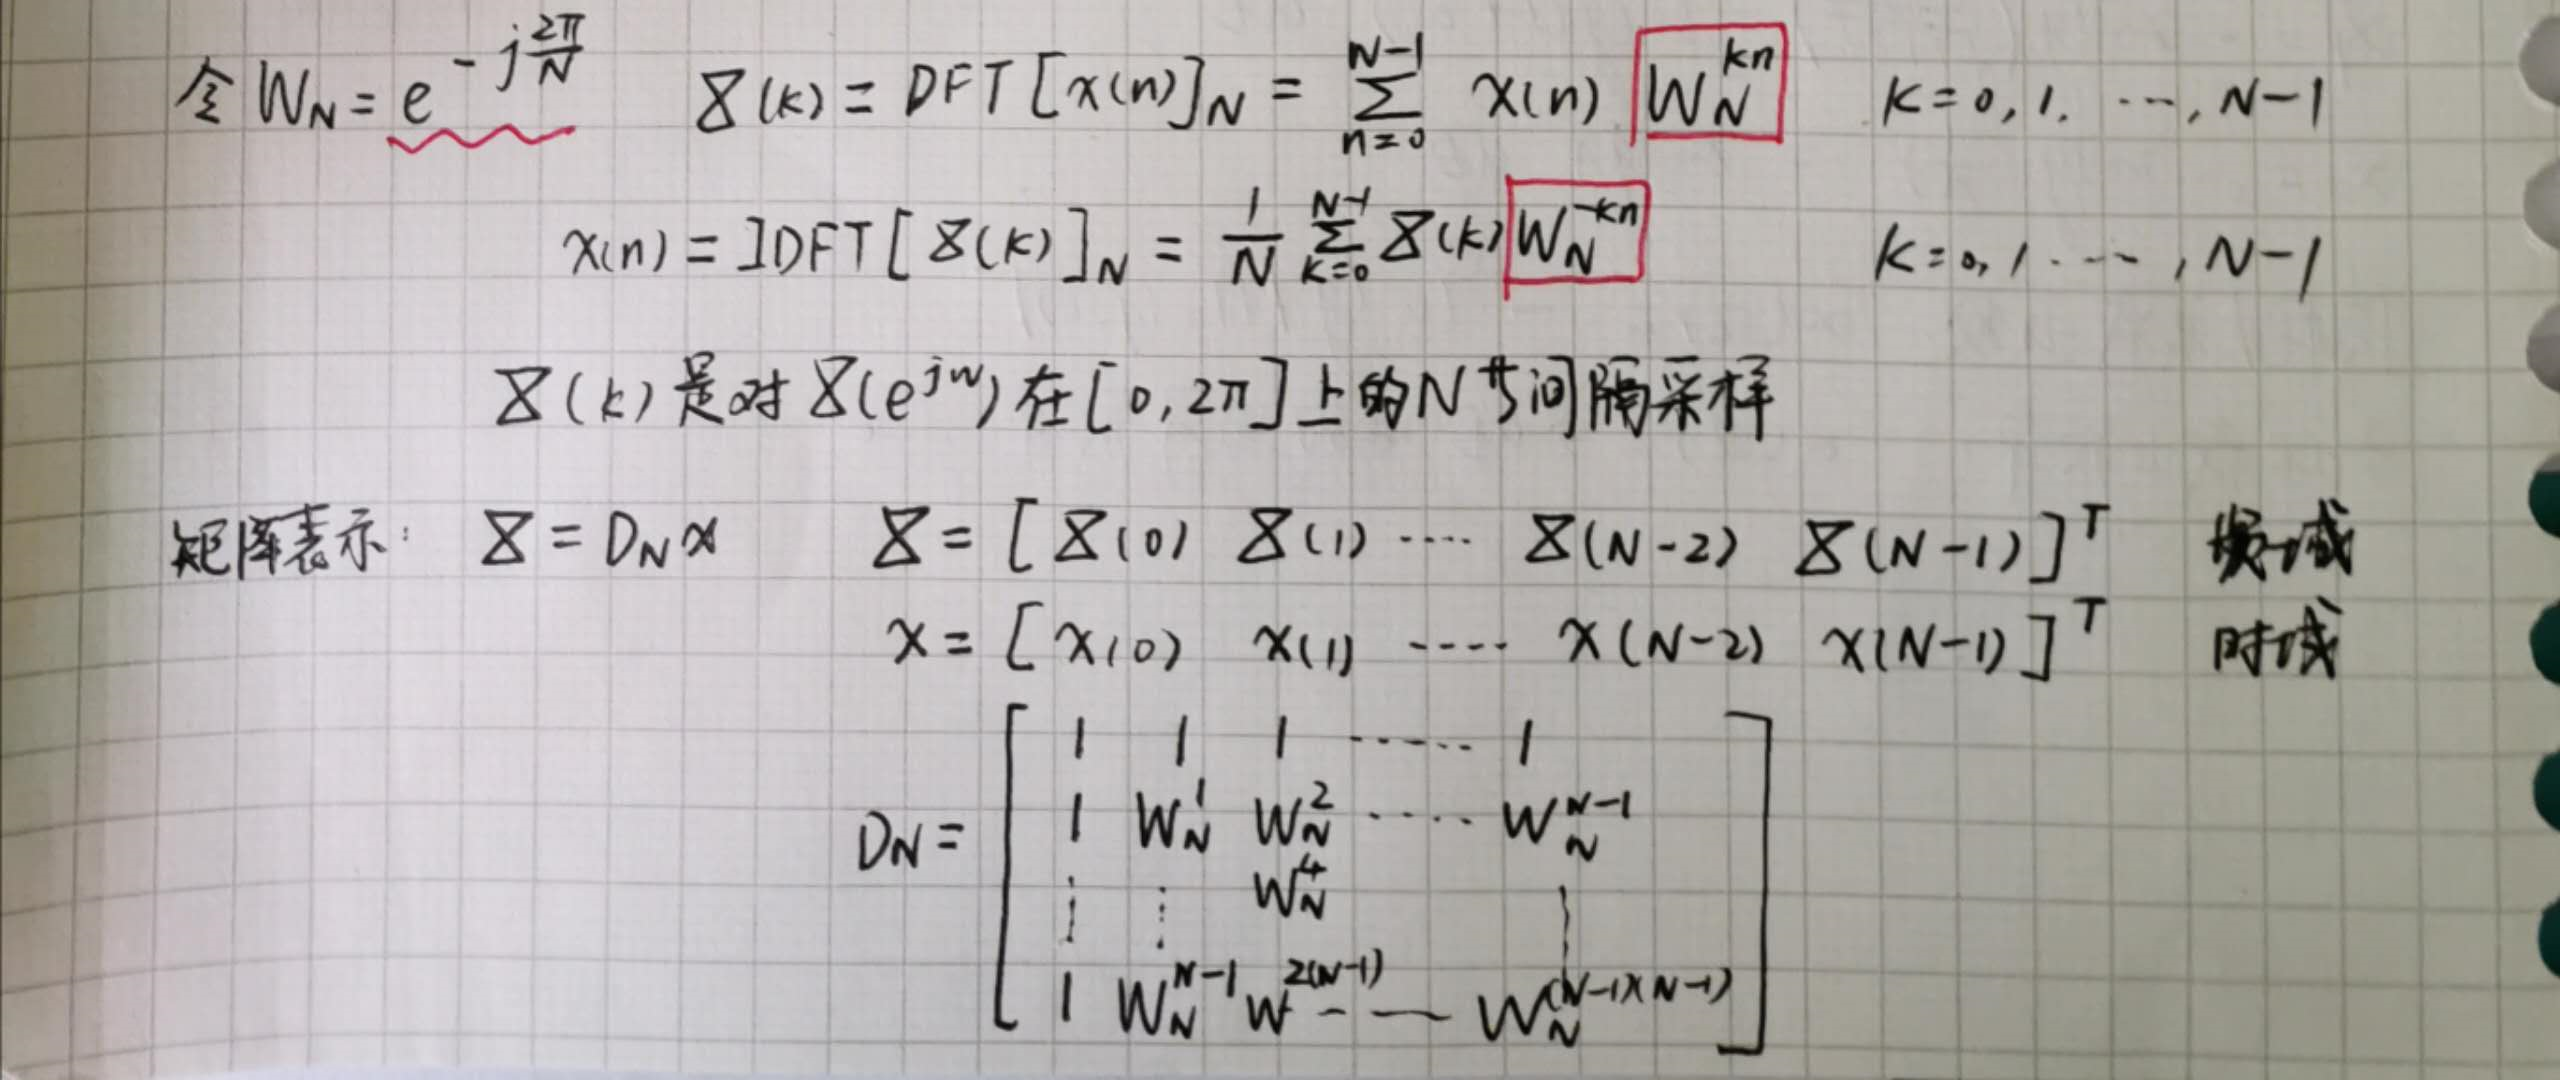 令 W_N = e^{-j\frac{2π}{N}}   X(k) = DFT[x(n)]_N = \sum_{n=0}^{N-1} x(n) W_N^{kn}   k=0,1. ···, N-1
x(n) = IDFT[X(k)]_N = \frac{1}{N} \sum_{k=0}^{N-1} X(k) W_N^{-kn}   k=0,1····, N-1
X(k)是对X(e^{jw})在[0,2π]上的N等间隔采样
矩阵表示: X = D_N x   X = [X(0) X(1) ···· X(N-2) X(N-1)]^T   域
x = [x(0) x(1) ···· x(N-2) x(N-1)]^T   时域
1 1 1 ······ 1
D_N = 1 W_N^1 W_N^2 ····· W_N^{N-1}
⋮ ⋮ W_N^4 ⋮
1 W_N^{N-1} W^{2(N-1)} --- W_N^{(N-1)(N-1)}